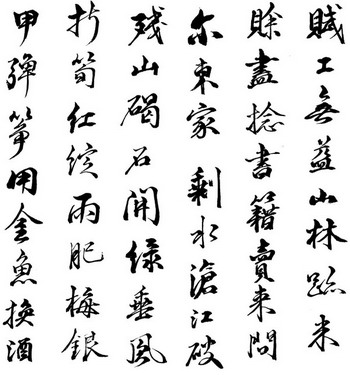 賦工無益山林跡未
賒盡捻書籍賣来問
尔東家 剩水滄江破
殘山碣石開緑垂風
折筍红綻雨肥梅銀
甲彈箏用金魚換酒